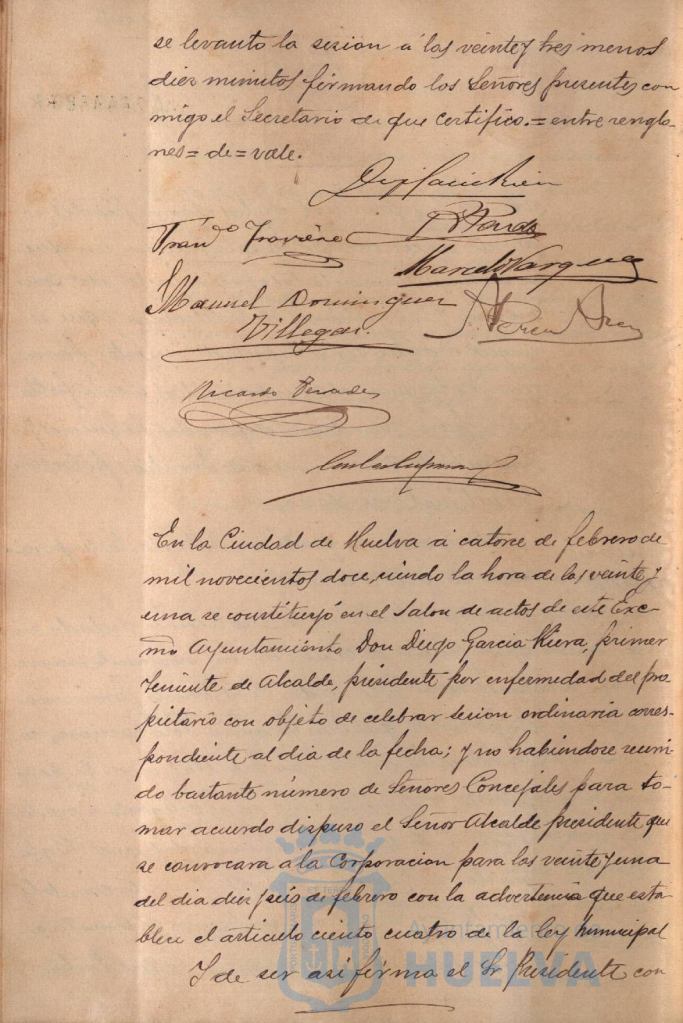 se levanto la sesion á las veinte y tres menos
diez minutos firmando los Señores presentes con
migo el Secretario de que certifico.=entre renglo-
nes=de=vale.
Fran.do
Marcelo Vargues
Manuel Dominguez
Villegas.
Ricardo
En la Ciudad de Huelva á catorce de febrero de
mil novecientos doce, siendo la hora de las veinte y
una se constituyó en el Salon de actos de este Exce-
mo Ayuntamiento Don Diego Garcia Riera, primer
Teniente de Alcalde, presidente por enfermedad del pro
pietario con objeto de celebrar sesion ordinaria corres-
pondiente al dia de la fecha; y no habiendose reuni-
do bastante número de Señores Concejales para to-
mar acuerdo dispuso el Señor Alcalde presidente que
se convocara a la Corporacion para las veinte y una
del dia diez y seis de febrero con la advertencia que esta-
blece el articulo ciento cuatro de la ley Municipal
Y de ser asi firma el Sr Presidente con
Ayuntamiento
HUELVA